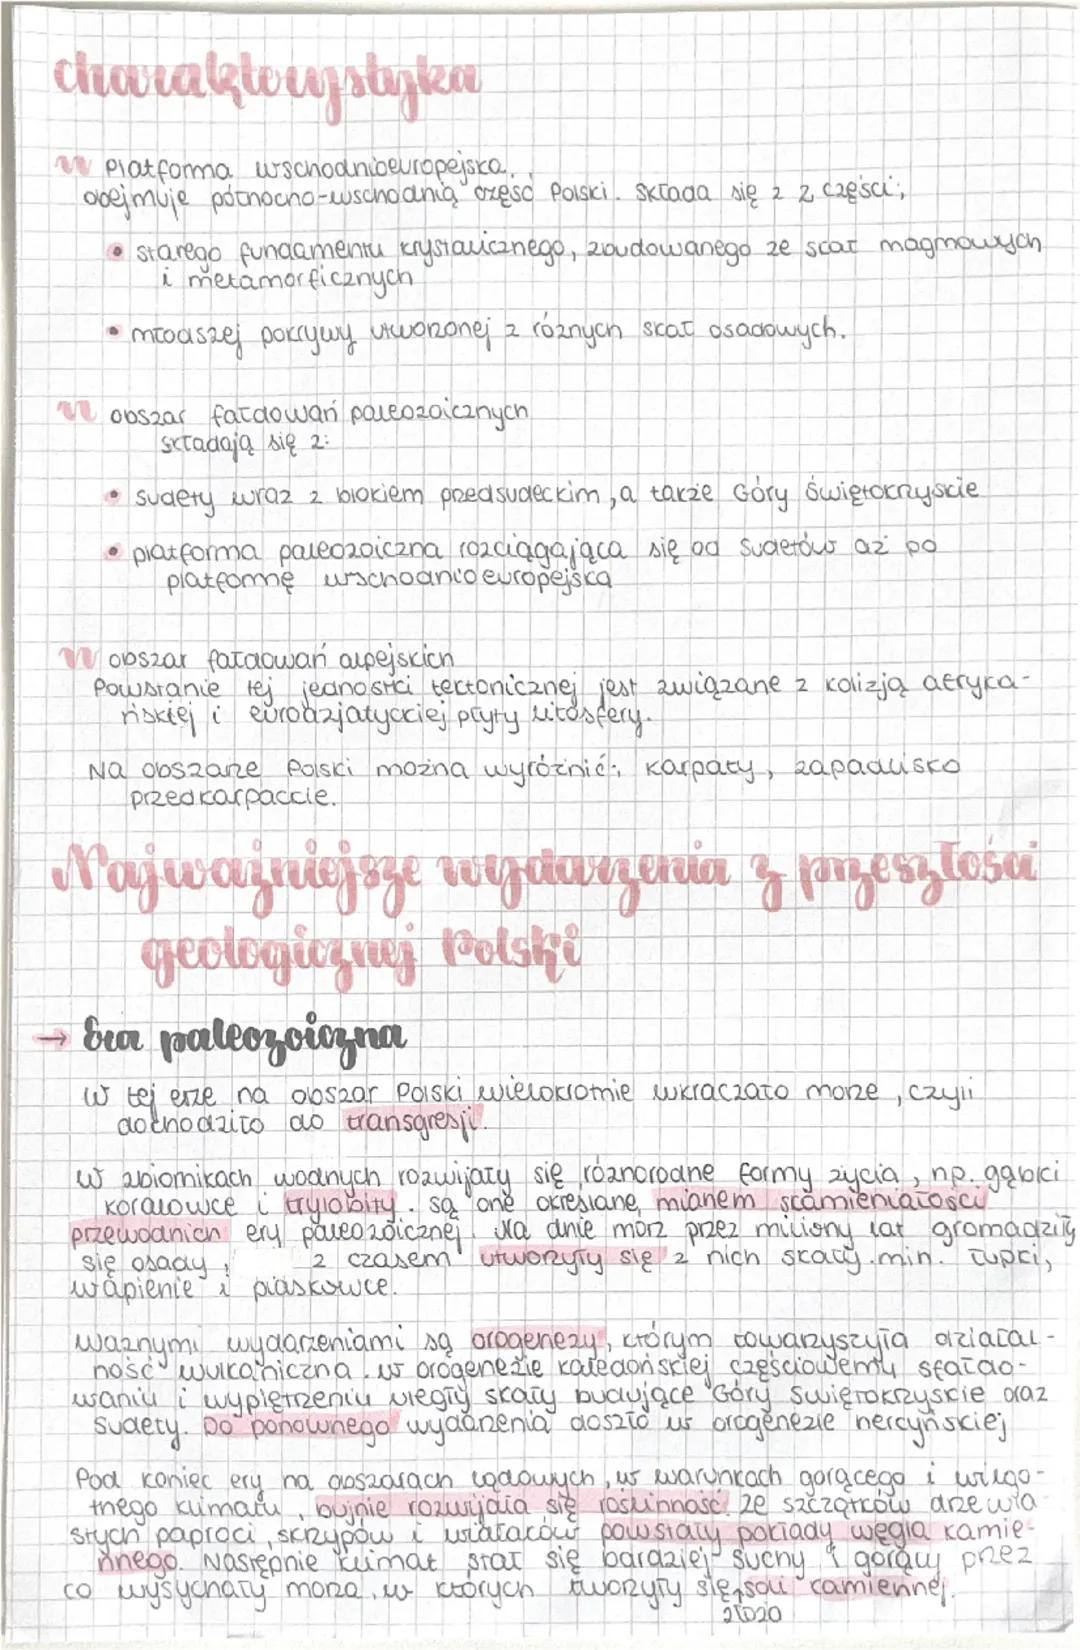 charakterystyka
platforma wschodnioeuropejska.
obejmuje północno-wschodnią część Polski. Składa się z 2 części;
• starego fundamentu krystalicznego, zbudowanego ze skał magmowych
i metamorficznych
• młodszej pokrywy utworzonej z różnych skał osadowych.
obszar fałdowań paleozoicznych
składają się z:
• sudety wraz z blokiem przedsudeckim, a także Góry Świętokrzyscie
• platforma paleozoiczna rozciągająca się od Sudetów aż po
platformę wschodnioeuropejską
obszar fałdowań alpejskich
Powstanie tej jednostki tectonicznej jest związane z kolizją afryka-
ńskiej i euroazjatyckiej płyty litosfery.
Na obszarze Polski można wyróżnić; Karpaty, zapadlisko
przedkarpackie.
Najważniejsze wydarzenia z przeszłości
geologicznej Polski
→ Era paleozoiczna
W tej erze na obszar Polski wielokrotnie wkraczało morze, czyli
dochodziło do transgresji.
W zbiornikach wodnych rozwijały się różnorodne formy życia, np. gąbki
koralowce i trylobity. są one określane mianem skamieniałości
przewodnich ery paleozoicznej. Na dnie mórz przez miliony lat gromadziły
się osady, z czasem utworzyły się z nich skały.min. łupki,
wapienie i piaskowce.
ważnymi wydarzeniami są orogenezy, którym towarzyszyła działal-
ność wulkaniczna. w orogenezie kaledońskiej częściowemu sfałdo-
waniu i wypiętrzeniu uległy skały budujące Góry Świętokrzyskie oraz
Sudety. Do ponownego wydarzenia doszło w orogenezie hercyńskiej
Pod koniec ery na obszarach lądowych, w warunkach gorącego i wilgo-
tnego klimatu, bujnie rozwijała się roślinność. Ze szczątków drzewia-
stych paproci, skrzypów i widłaków powstały pokłady węgla kamie-
nnego. Następnie klimat stał się bardziej suchy i gorący przez
co wysychały morza, w których tworzyły się soli kamiennej.
złoża